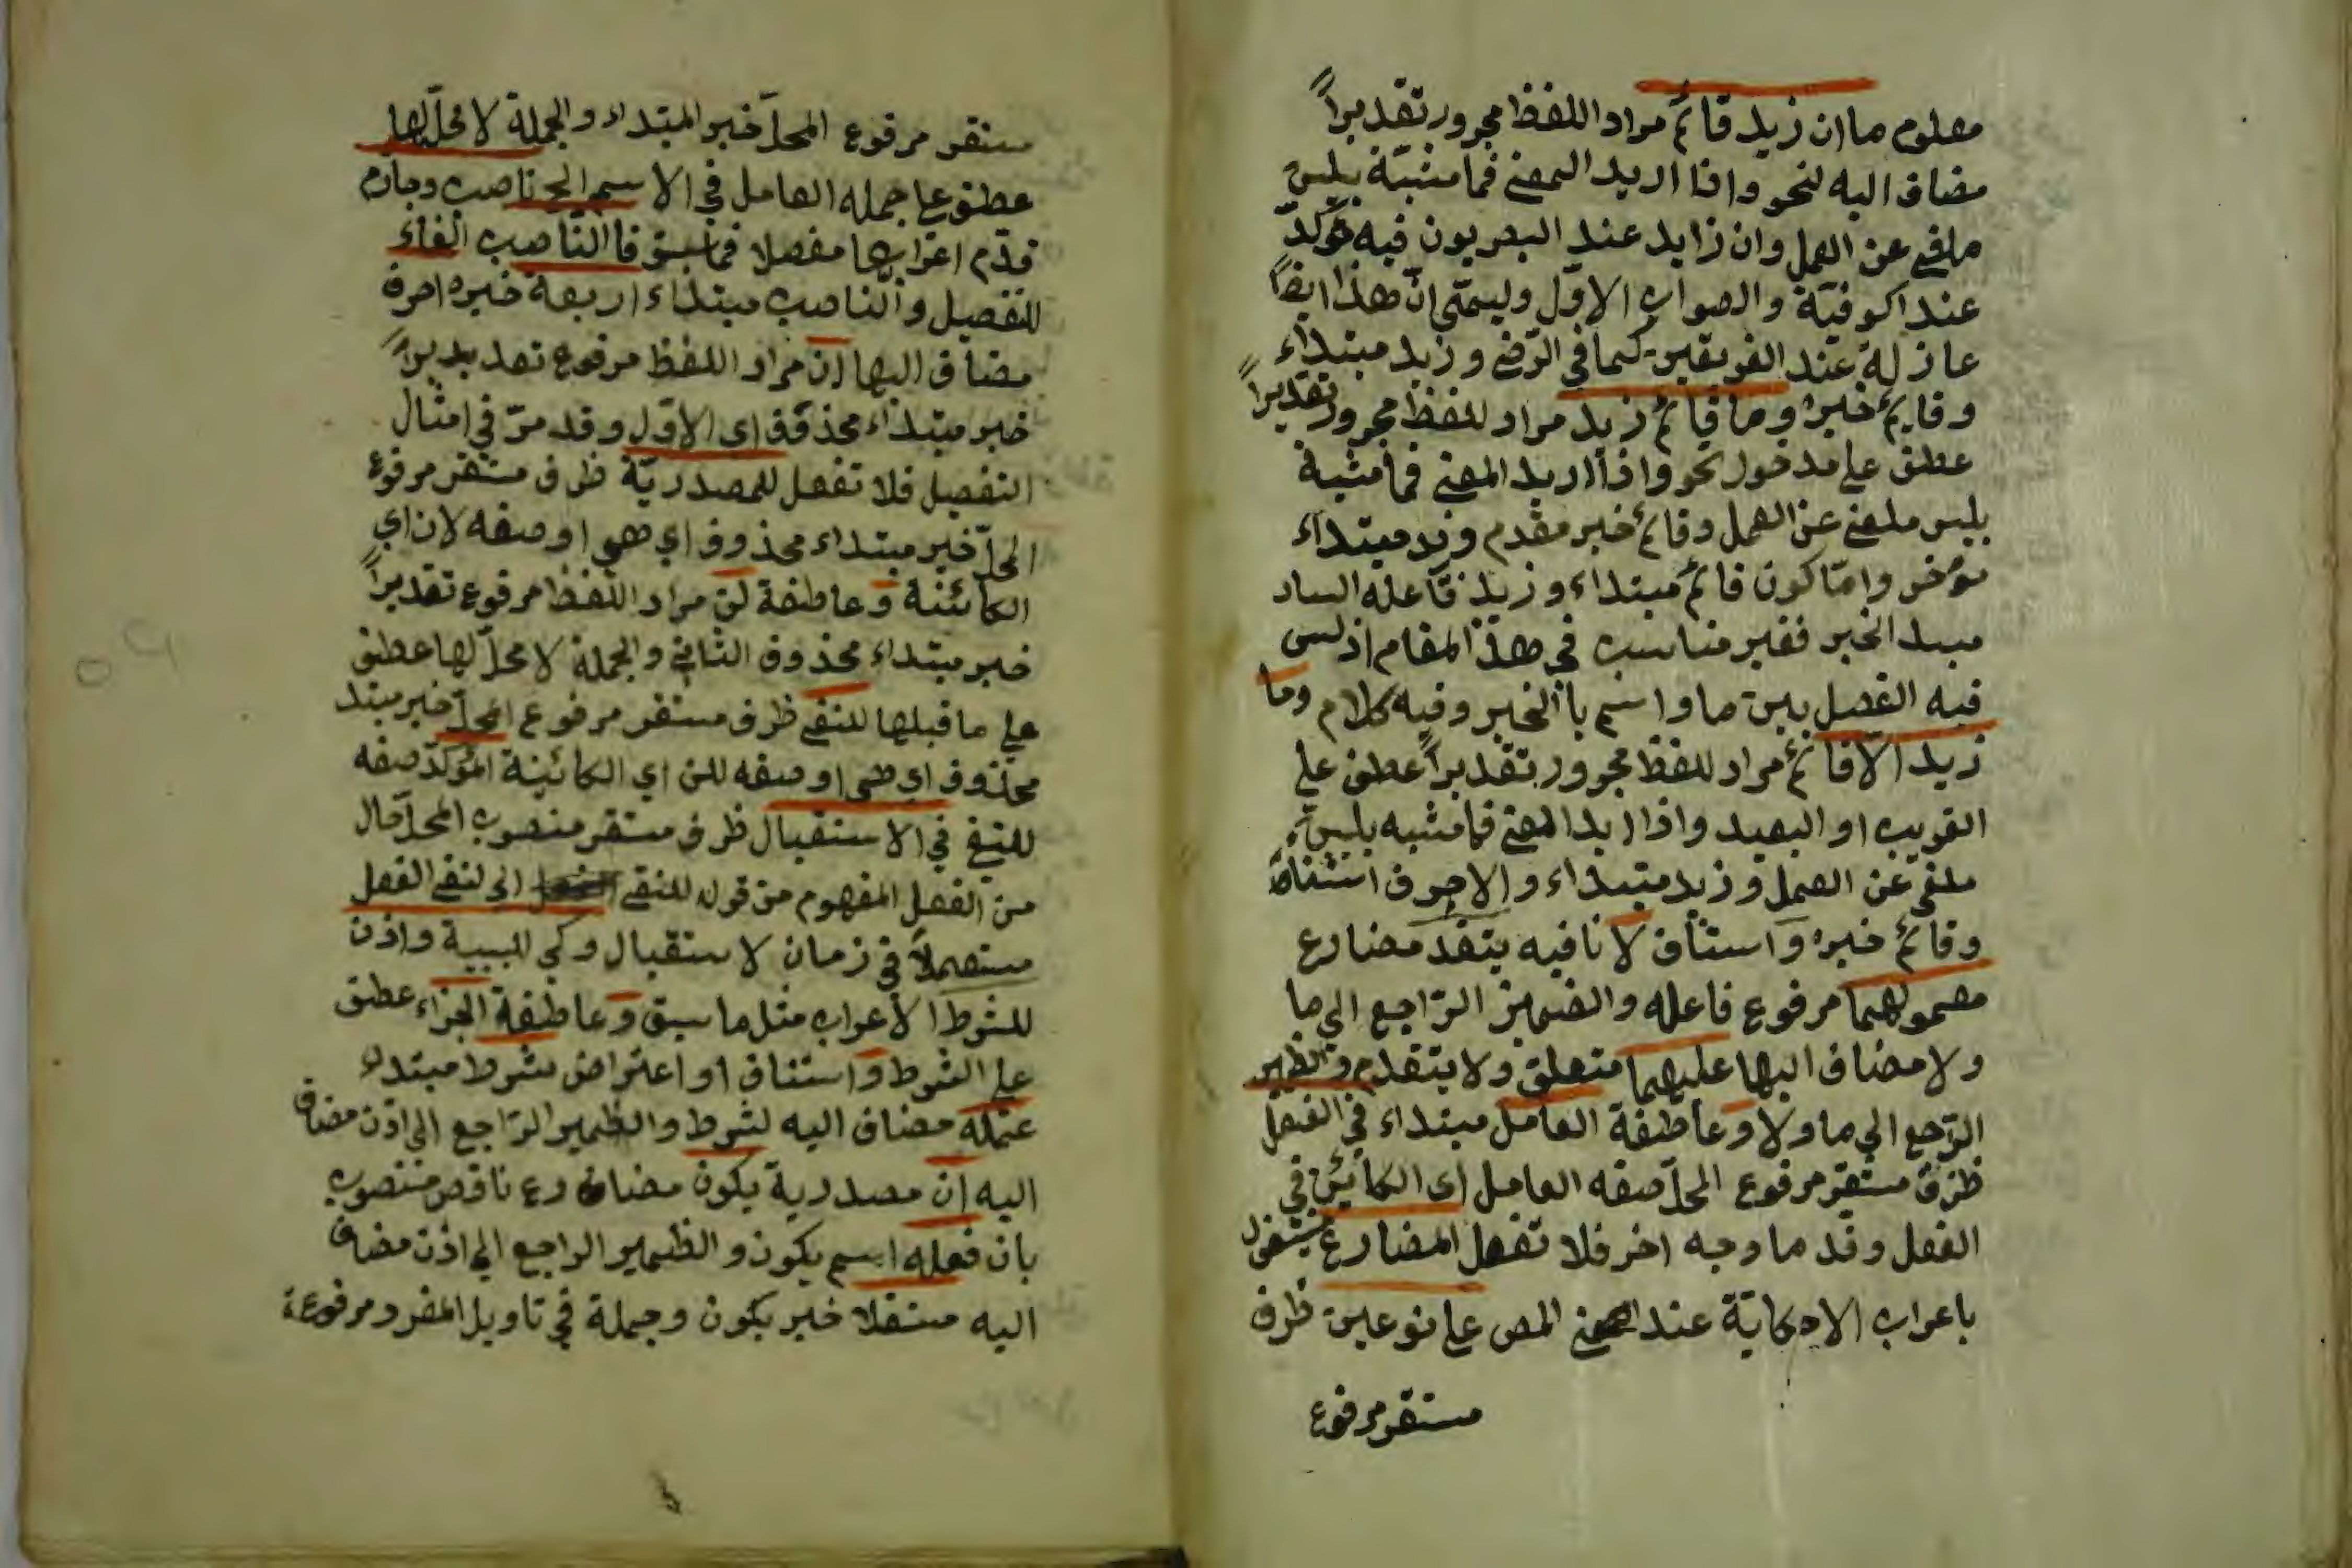 معلوم ما ان زيد قائم مراد اللفظ مجرور تقديراً
مضاف اليه لنحو واذا اريد المعنى فما مشبّهة بليس
ملغى عن العمل وان زايد عند البصريون فيه مؤكّد
عند اكوفيّة والصواب الاوّل وليسمّى انّ هذا ايضاً
عازلة عند الفريقين كما في الرّضي وزيد مبتداء
وقايم خبره وما قائم زيد مراد للفظ مجرور تقديراً
عطف على مدخول نحو واذا اريد المعنى فما مشبهة
بليس ملغى عن العمل وقائم خبر مقدم وزيد مبتداء
مؤخر وامّا كون قائم مبتداء وزيد فاعله الساد
مسد الخبر فغير مناسب في هذا المقام اذ ليس
فيه الفصل بين ما واسم با الخبر وفيه كلام وما
زيد الّا قائم مراد للفظ مجرور بتقديراً عطف على
القريب او البعيد واذا اريد المعنى فما مشبه بليس
ملغى عن العمل وزيد مبتداء والا حرف استثناء
وقائم خبره واستئناف لا نافيه يتقدم مضارع
معمولهما مرفوع فاعله والضمير الرّاجع الى ما
ولا مضاف اليها عليهما متعلق ولا يتقدم والظمير
الرّجع الى ما ولا وعاطفة العامل مبتداء في الفعل
ظرف مستقر مرفوع المحلّ صفه العامل اى الكائين في
الفعل وقد ما وجه اخر فلا تغفل المضارع مشغول
باعراب الاحكايّة عند المص على نوعين ظرف
مستقر مرفوع
مستقر مرفوع المحلّ خبر المبتداء والجملة لا محلّ لها
عطف على جمله العامل في الاسم الخ ناصب وجازم
قدّم اعرابها مفصلا فما سبق فا الناصب الفاء
للتفصيل والناصب مبتداء اربعة خبره احرف
مضاف اليها ان مراد اللفظ مرفوع تقديراً
خبر مبتداء محذوف اى الاوّل وقد مرّ في امثال
التفصيل فلا تغفل للمصدريّة ظرف مستقر مرفوع
المحلّ خبر مبتداء محذوف اي هي او صفه لان اي
الكائنة وعاطفة لن مراد اللفظ مرفوع تقديراً
خبر مبتداء محذوف الثاني والجملة لا محلّ لها عطف
على ما قبلها للنفي ظرف مستقر مرفوع المحلّ خبر مبتد
محذوف اي هي او صفه للن اي الكائينة المؤكدّ صفه
للنفي في الاستقبال ظرف مستقر منصوب المحلّ حال
من الفعل المفهوم من قوله للنفي اى لنفي الفعل
مستعملاً في زمان لاستقبال وكي للسببية واذن
للشرط الاعراب مثل ما سبق وعاطفة الجزاء عطف
على الشرط واستئناف او اعتراض شرط مبتداء
عمله مضاف اليه لشرط والظمير الرّاجع الى اذن مضاف
اليه ان مصدرية يكون مضارع ناقص منصوب
بان فعله اسم يكون والظمير الراجع الى اذن مضاف
اليه مستقلا خبر يكون وجملة في تاويل المفرد مرفوعة